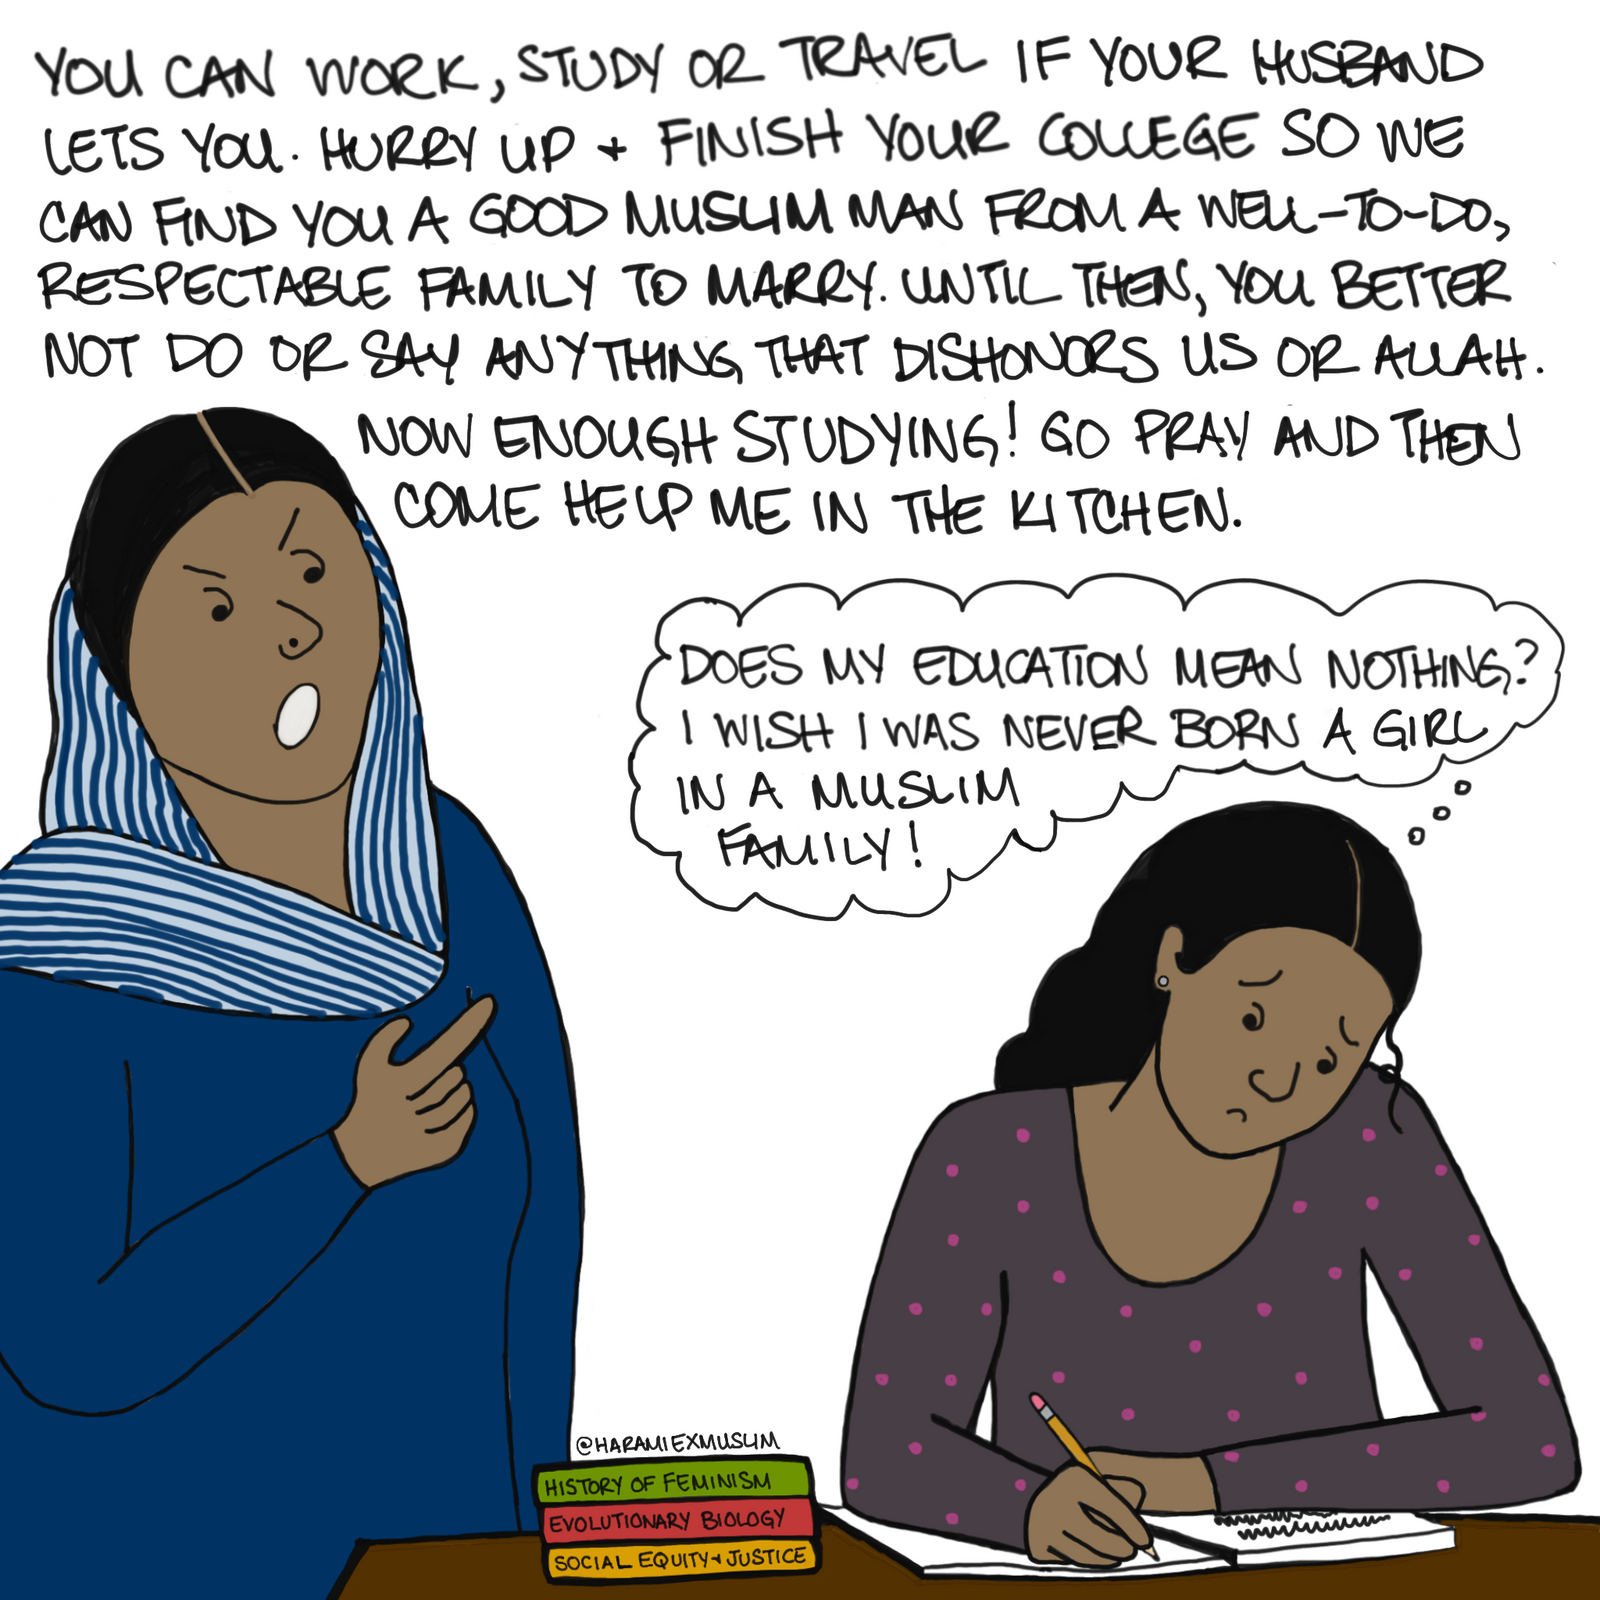 YOU CAN WORK, STUDY OR TRAVEL IF YOUR HUSBAND
LETS YOU. HURRY UP + FINISH YOUR COLLEGE SO WE
CAN FIND YOU A GOOD MUSLIM MAN FROM A WELL-TO-DO,
RESPECTABLE FAMILY TO MARRY. UNTIL THEN, YOU BETTER
NOT DO OR SAY ANYTHING THAT DISHONORS US OR ALLAH.
NOW ENOUGH STUDYING! GO PRAY AND THEN
COME HELP ME IN THE KITCHEN.
DOES MY EDUCATION MEAN NOTHING?
I WISH I WAS NEVER BORN A GIRL
IN A MUSLIM
FAMILY!
@HARAMIEXMUSLIM
HISTORY OF FEMINISM
EVOLUTIONARY BIOLOGY
SOCIAL EQUITY + JUSTICE